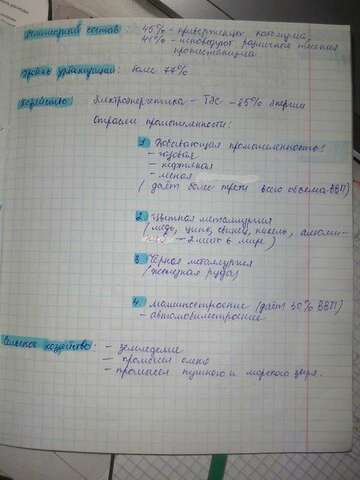 Религиозный состав: 46% - приверженцы католицизма,
41% - исповедуют различные течения
протестантизма
Уровень урбанизации: более 77%
Хозяйство: Электроэнергетика - ТЭС - 85% энергии
Отрасли промышленности:
1 Добывающая промышленность:
- газовая
- нефтяная
- лесная
(даёт более трети всего объема ВВП)
2 Цветная металлургия
(медь, цинк, свинец, никель, алюми-
- 2 место в мире)
3 Чёрная металлургия
(железная руда)
4. машиностроение (даёт 30% ВВП)
- автомобилестроение
Сельское хозяйство: - земледелие
- промысел
- промысел пушного и морского зверя.